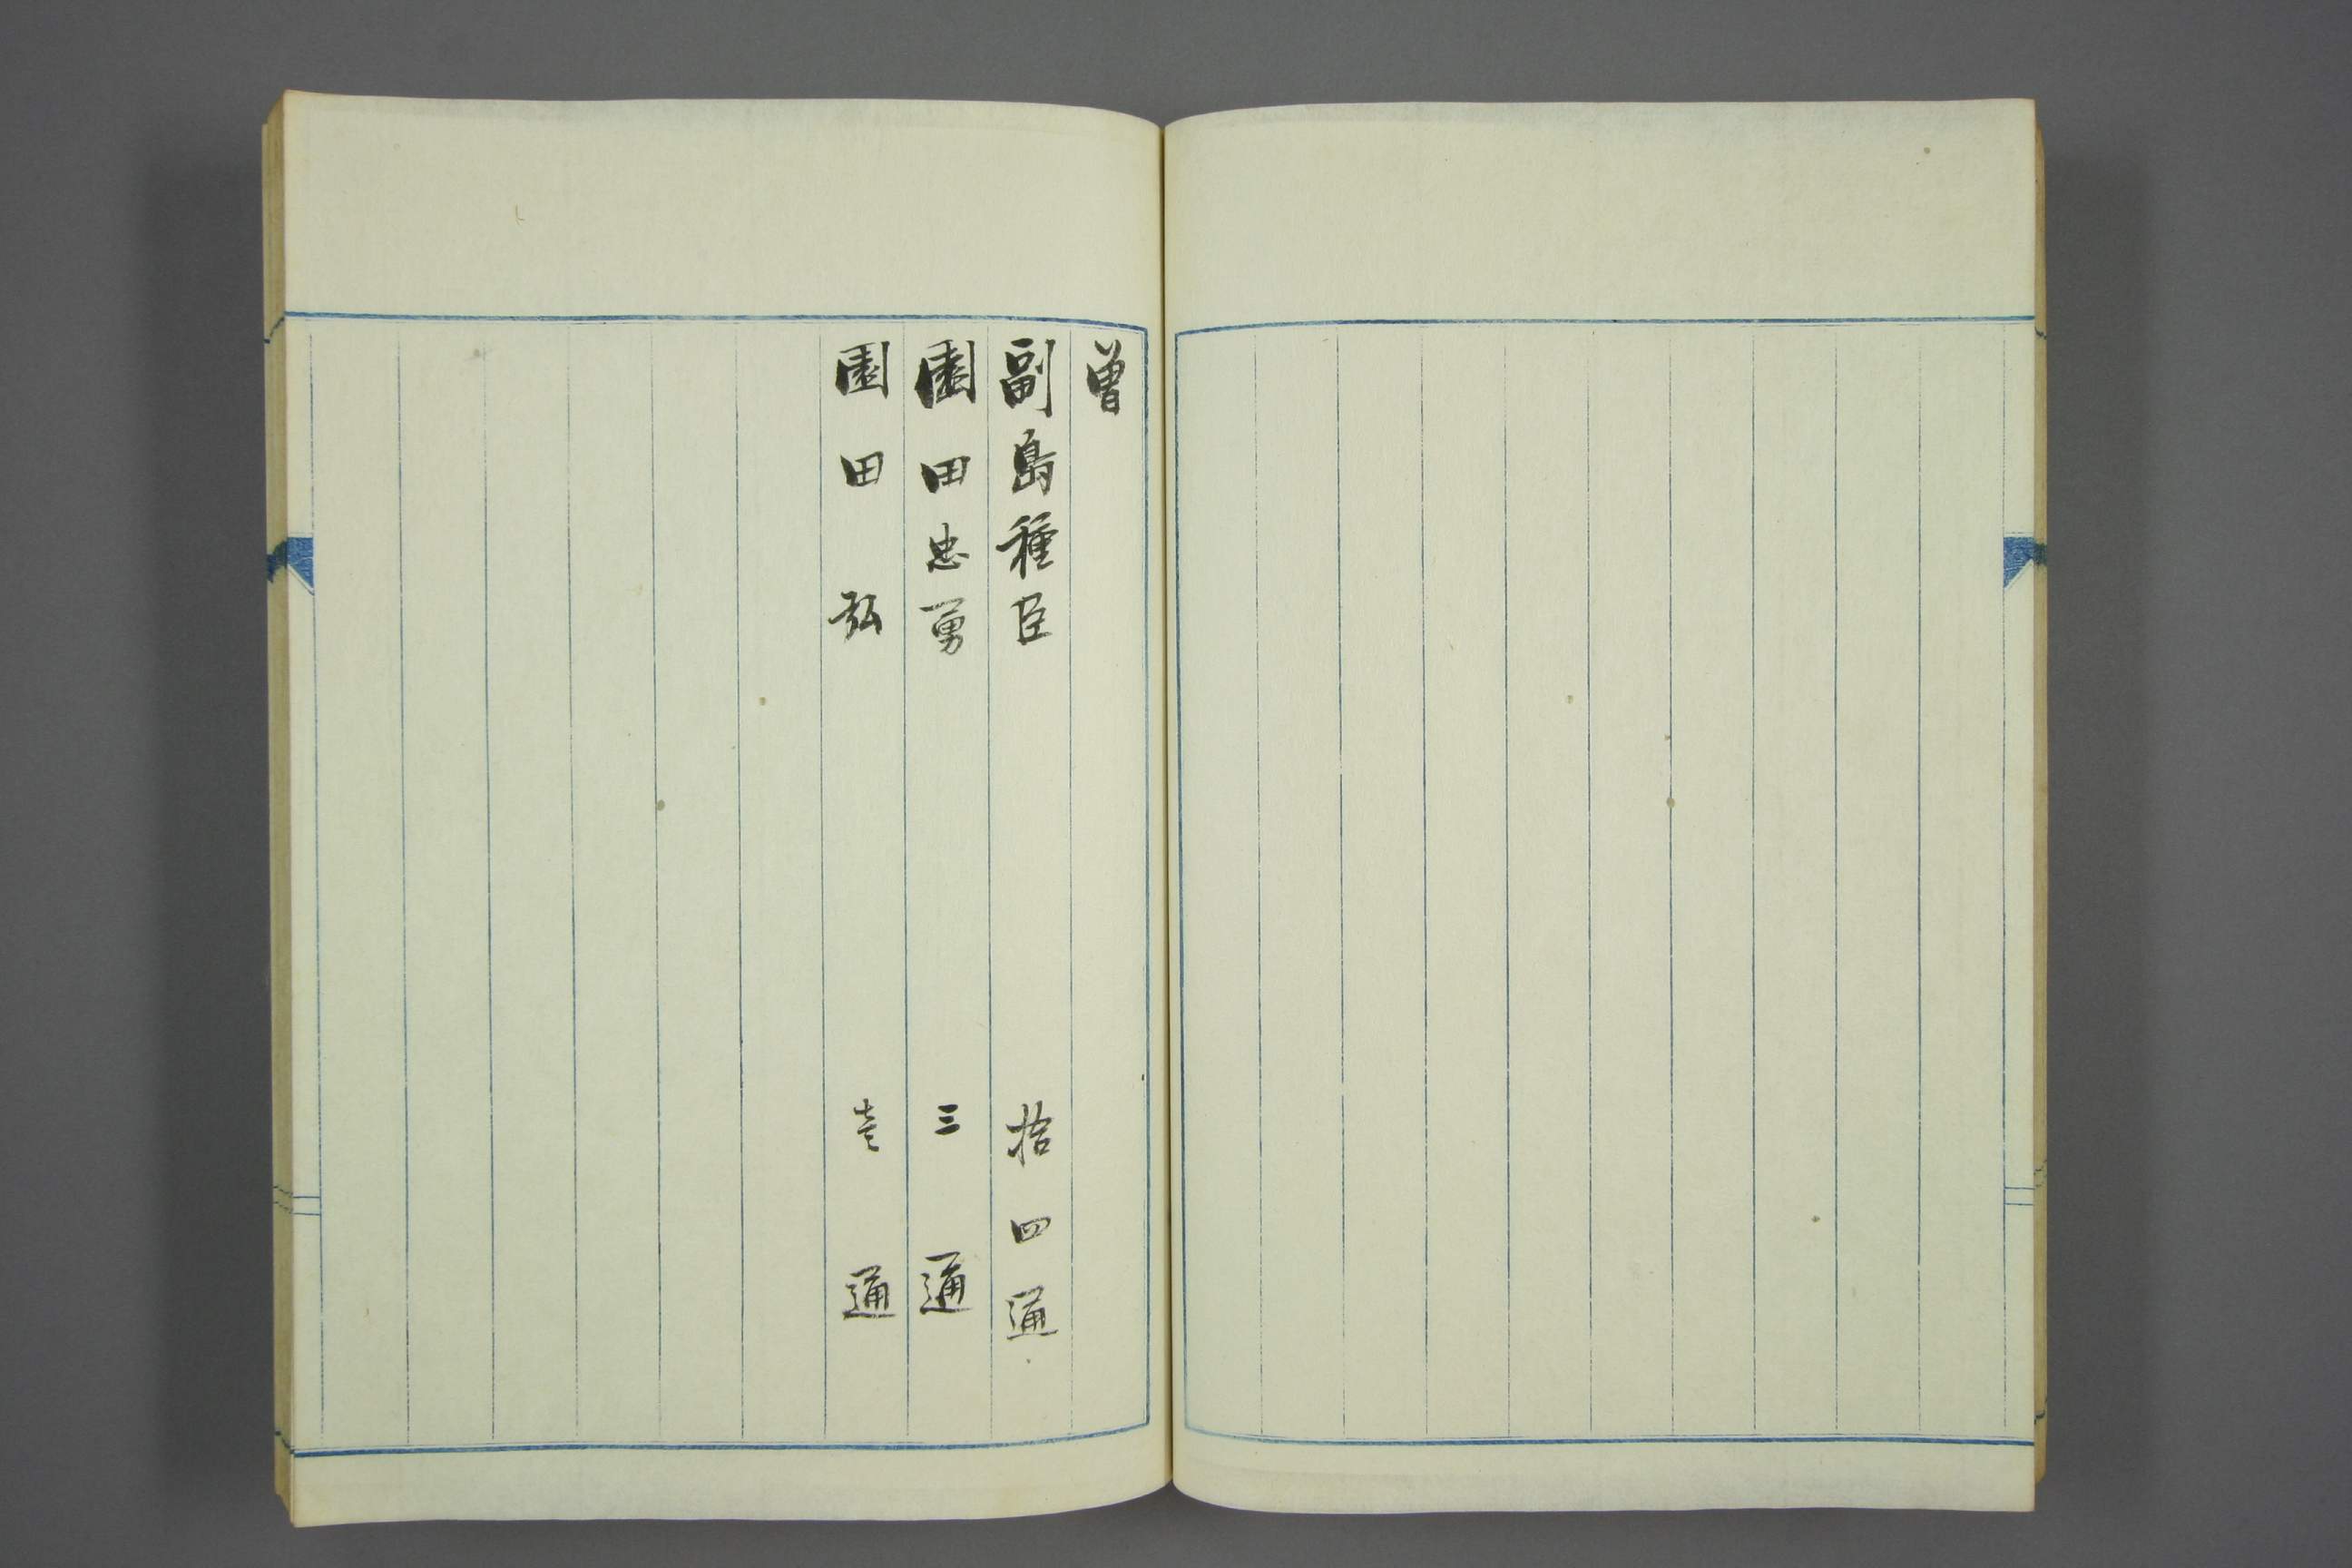 曽
副島種臣 拾四通
園田忠勇 三通
園田弘 壱通